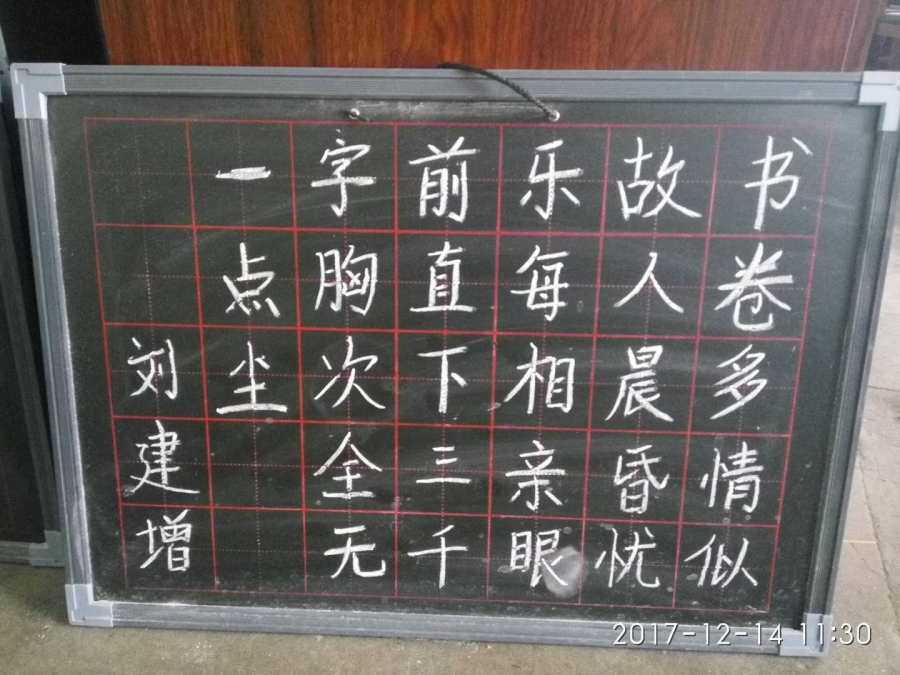 书卷多情似
故人晨昏忧
乐每相亲眼
前直下三千
字胸次全无
一点尘
刘建增
2017-12-14 11:30